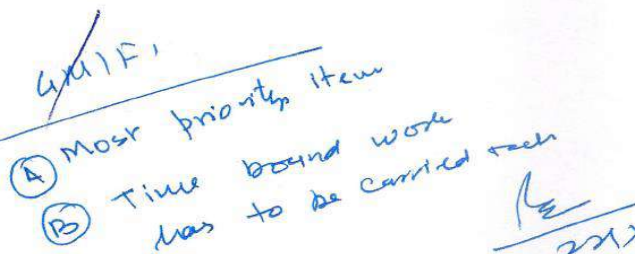 GM/F,
(A) Most priority item
(B) Time bound work
has to be carried